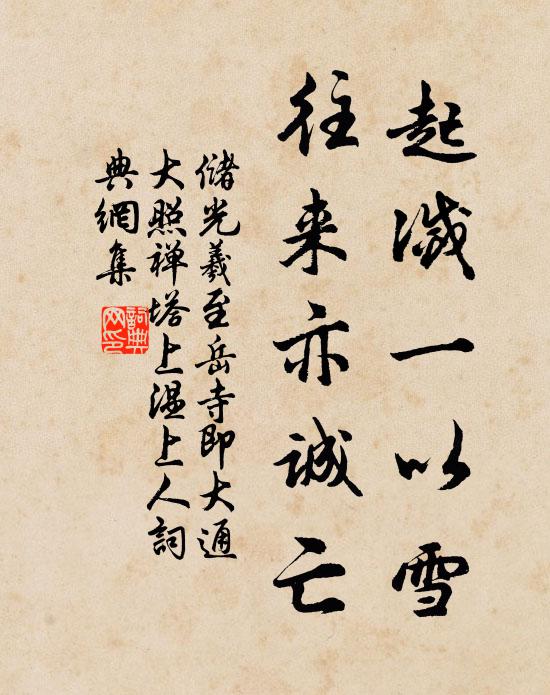 起滅一以雪
往来亦誠亡
儲光羲至岳寺即大通
大照禅塔上温上人詞
典網集
詞典
网印